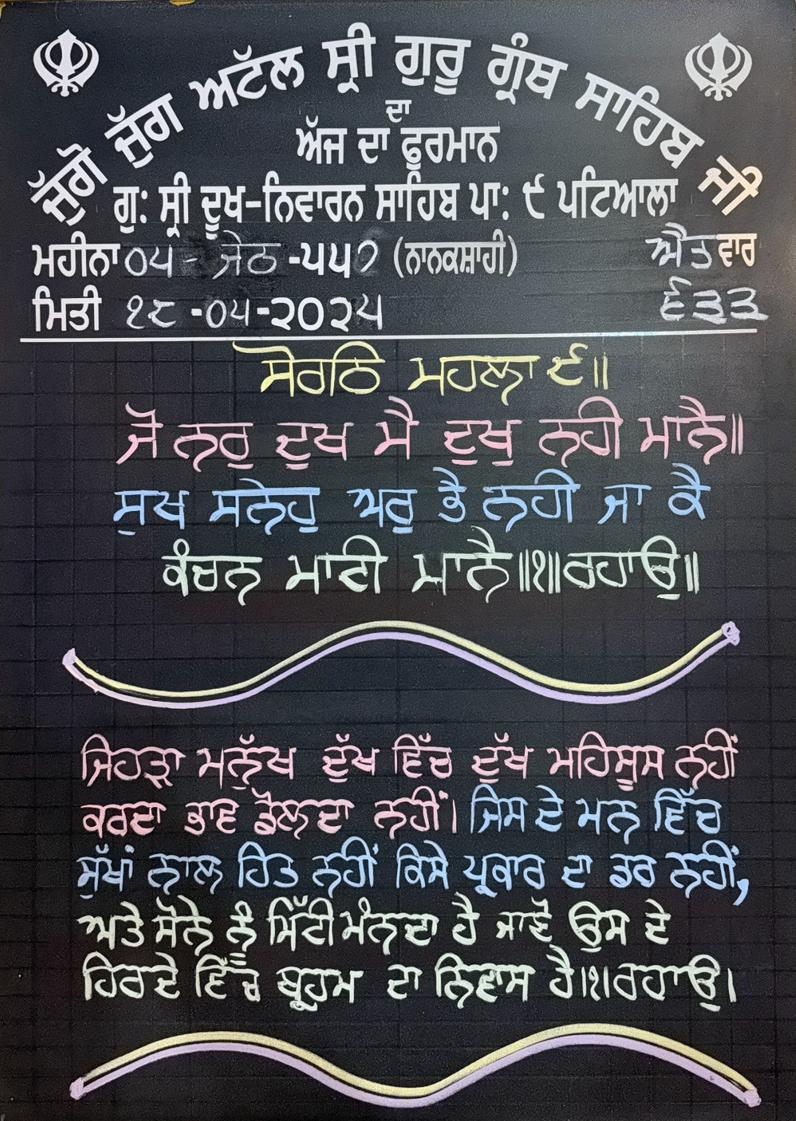 ਜੁੱਗੋ ਜੁੱਗ ਅਟੱਲ ਸ੍ਰੀ ਗੁਰੂ ਗ੍ਰੰਥ ਸਾਹਿਬ ਜੀ
ਦਾ
ਅੱਜ ਦਾ ਫੁਰਮਾਨ
ਗੁ: ਸ੍ਰੀ ਦੂਖ-ਨਿਵਾਰਨ ਸਾਹਿਬ ਪਾ: ੯ ਪਟਿਆਲਾ
ਮਹੀਨਾ ੦੫ - ਜੇਠ -੫੫੭ (ਨਾਨਕਸ਼ਾਹੀ) ਐਤਵਾਰ
ਮਿਤੀ ੧੮ -੦੫-੨੦੨੫ ੬੩੩
ਸੋਰਠਿ ਮਹਲਾ ੯॥
ਜੋ ਨਰੁ ਦੁਖ ਮੈ ਦੁਖੁ ਨਹੀ ਮਾਨੈ॥
ਸੁਖ ਸਨੇਹੁ ਅਰੁ ਭੈ ਨਹੀ ਜਾ ਕੈ
ਕੰਚਨ ਮਾਟੀ ਮਾਨੈ॥੧॥ਰਹਾਉ॥
ਜਿਹੜਾ ਮਨੁੱਖ ਦੁੱਖ ਵਿੱਚ ਦੁੱਖ ਮਹਿਸੂਸ ਨਹੀਂ
ਕਰਦਾ ਭਾਵ ਡੋਲਦਾ ਨਹੀਂ। ਜਿਸ ਦੇ ਮਨ ਵਿੱਚ
ਸੁੱਖਾਂ ਨਾਲ ਹਿਤ ਨਹੀਂ ਕਿਸੇ ਪ੍ਰਕਾਰ ਦਾ ਡਰ ਨਹੀਂ,
ਅਤੇ ਸੋਨੇ ਨੂੰ ਮਿੱਟੀ ਮੰਨਦਾ ਹੈ ਜਾਵੋ ਉਸ ਦੇ
ਹਿਰਦੇ ਵਿੱਚ ਬ੍ਰਹਮ ਦਾ ਨਿਵਾਸ ਹੈ।੧।ਰਹਾਉ।